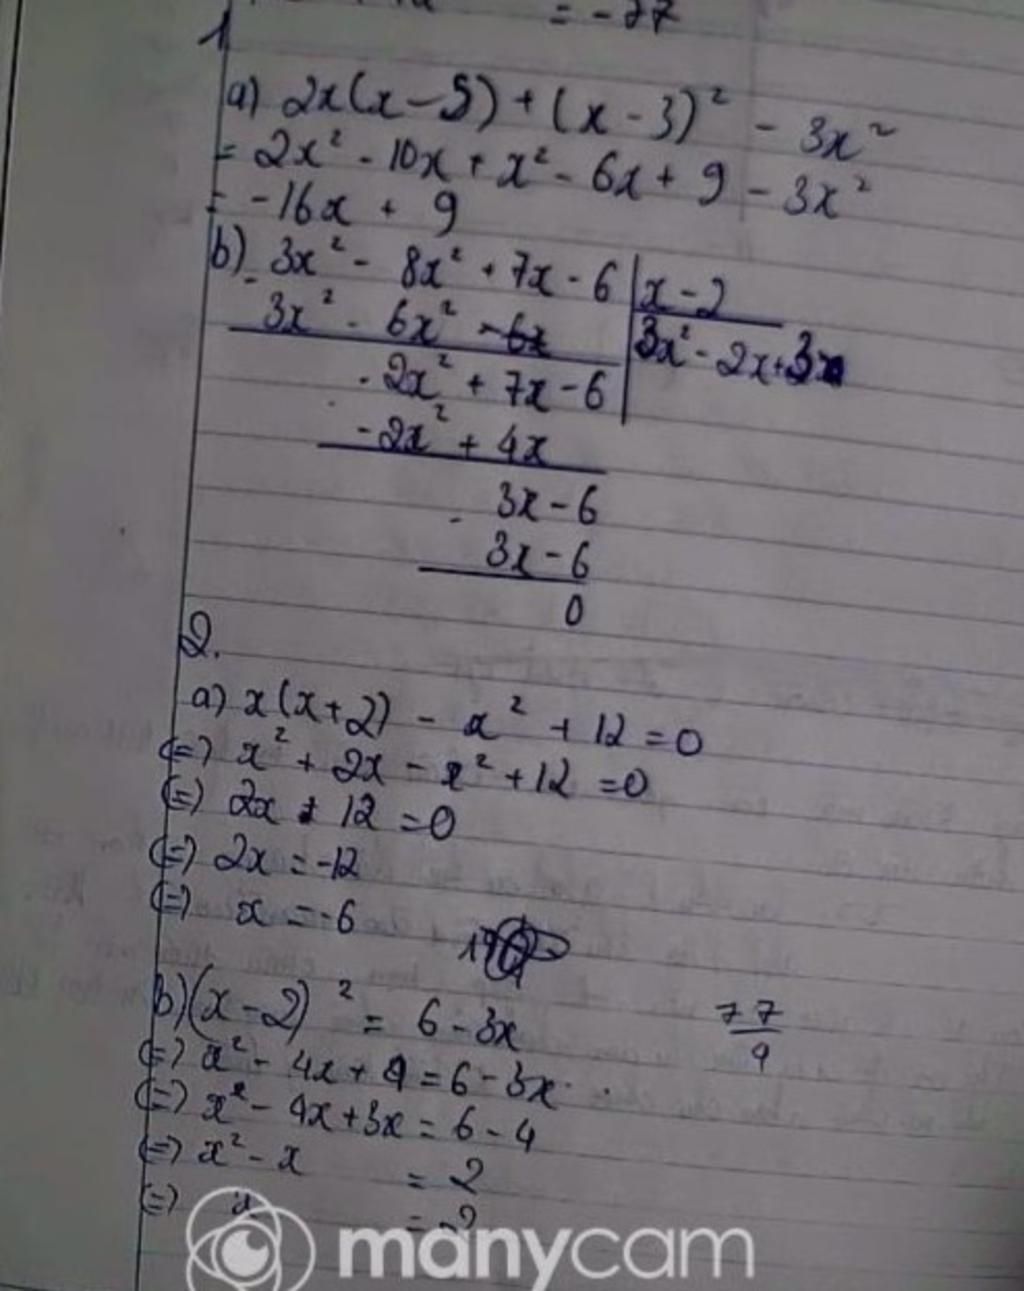 = -77
1
a) 2x(x-5) + (x-3)² - 3x²
= 2x² - 10x + x² - 6x + 9 - 3x²
= -16x + 9
b) 3x² - 8x² + 7x - 6 | x - 2
3x² - 6x² | 3x² - 2x + 3
-2x² + 7x - 6
-2x² + 4x
3x - 6
3x - 6
0
2.
a) x(x+2) - x² + 12 = 0
(=) x² + 2x - x² + 12 = 0
(=) 2x + 12 = 0
(=) 2x = -12
(=) x = -6
b) (x-2)² = 6 - 3x
77/9
(=) x² - 4x + 4 = 6 - 3x
(=) x² - 4x + 3x = 6 - 4
(=) x² - x = 2
(=)
manycam